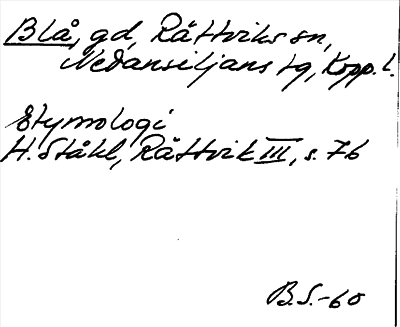 Blå, gd, Rättviks sn,
Nedansiljans tg, Kopp. l.
Etymologi
H. Ståhl, Rättvik III, s. 76
B.S.-60